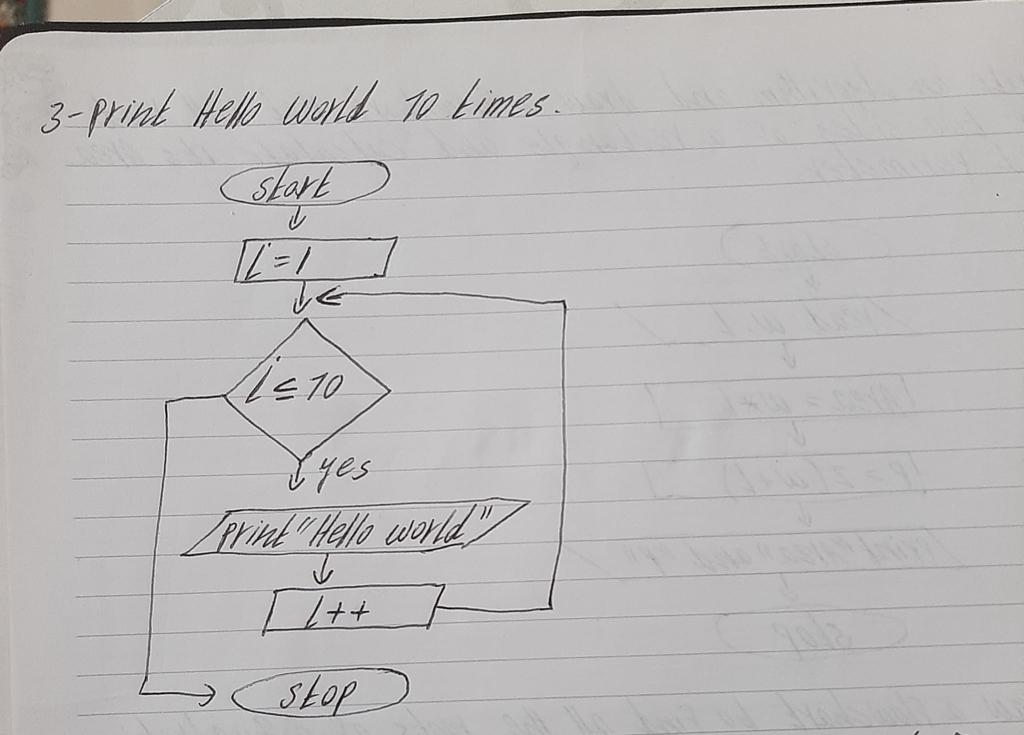 3-print Hello world 10 times.
start
i=1
i≤10
yes
print"Hello world"
i++
stop